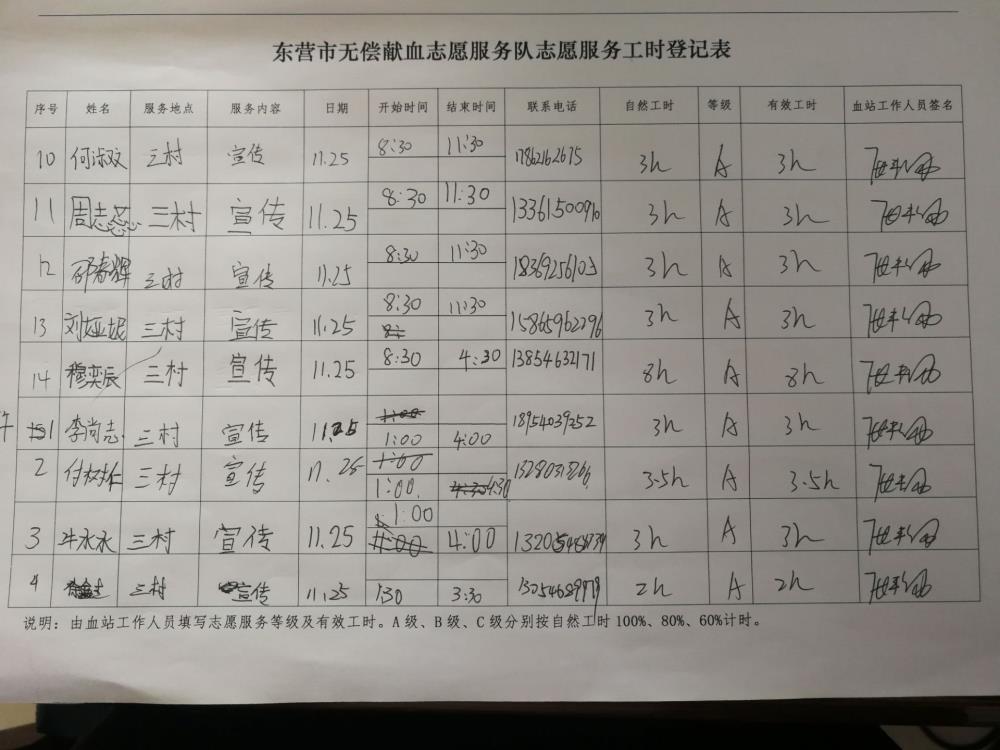 东营市无偿献血志愿服务队志愿服务工时登记表
序号 姓名 服务地点 服务内容 日期 开始时间 结束时间 联系电话 自然工时 等级 有效工时 血站工作人员签名
10 何淑双 三村 宣传 11.25 8:30 11:30 17862162675 3h A 3h
11 周志蕊 三村 宣传 11.25 8:30 11:30 13361500976 3h A 3h
12 邵春辉 三村 宣传 11.25 8:30 11:30 18369256103 3h A 3h
13 刘娅妮 三村 宣传 11.25 8:30 11:30 15865962296 3h A 3h
14 穆奕辰 三村 宣传 11.25 8:30 4:30 13854632171 8h A 8h
1 李尚志 三村 宣传 11.25 1:00 4:00 18954039252 3h A 3h
2 付树仁 三村 宣传 11.25 1:00 4:30 3.5h A 3.5h
3 牛永永 三村 宣传 11.25 1:00 4:00 3h A 3h
4 三村 宣传 11.25 1:30 3:30 13054689979 2h A 2h
说明：由血站工作人员填写志愿服务等级及有效工时。A级、B级、C级分别按自然工时100%、80%、60%计时。